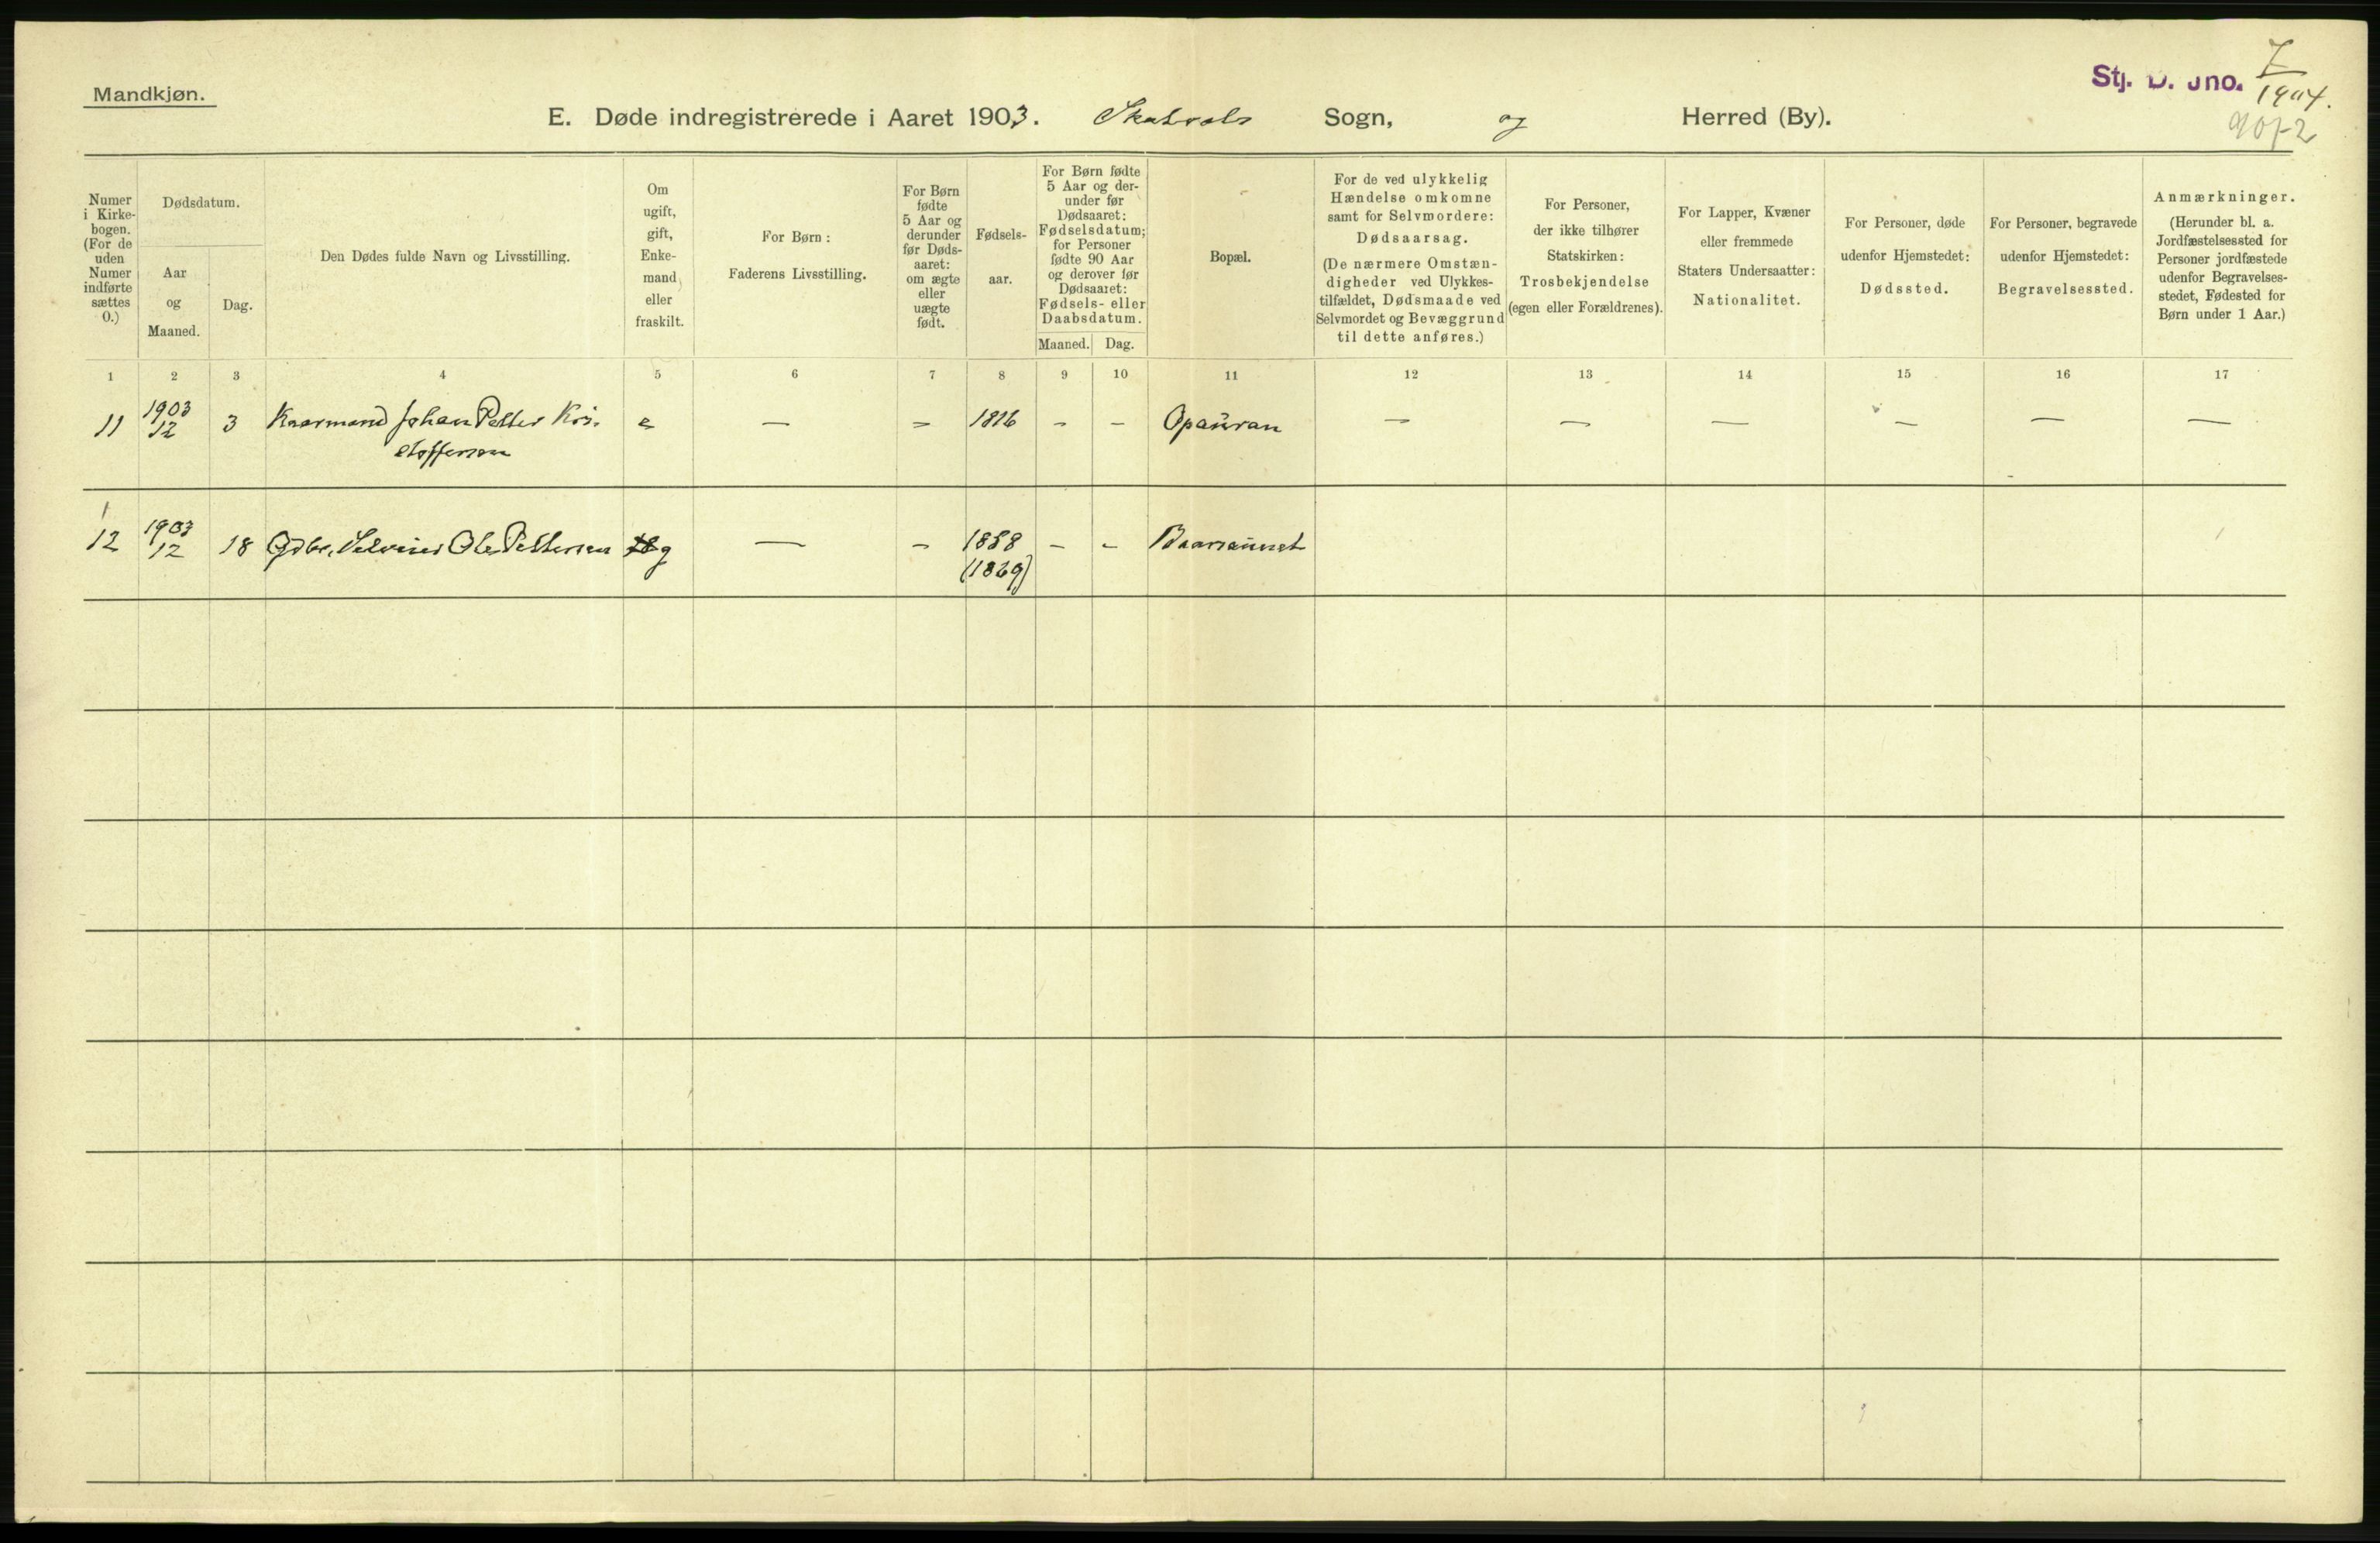 Mandkjøn.
E. Døde indregistrerede i Aaret 1903. Skatvals Sogn, og Herred (By).
Stj. D. Jno. 7
1904.
907-2
Numer
i Kirke-
bogen.
(For de
uden
Numer
indførte
sættes
0.)
Dødsdatum.
Aar
og
Maaned.
Dag.
Den Dødes fulde Navn og Livsstilling.
Om
ugift,
gift,
Enke-
mand
eller
fraskilt.
For Børn:
Faderens Livsstilling.
For Børn
fødte
5 Aar og
derunder
før Døds-
aaret:
om ægte
eller
uægte
født.
Fødsels-
aar.
For Børn fødte
5 Aar og der-
under før
Dødsaaret:
Fødselsdatum;
for Personer
fødte 90 Aar
og derover før
Dødsaaret:
Fødsels- eller
Daabsdatum.
Maaned. Dag.
Bopæl.
For de ved ulykkelig
Hændelse omkomne
samt for Selvmordere:
Dødsaarsag.
(De nærmere Omstæn-
digheder ved Ulykkes-
tilfældet, Dødsmaade ved
Selvmordet og Bevæggrund
til dette anføres.)
For Personer,
der ikke tilhører
Statskirken:
Trosbekjendelse
(egen eller Forældrenes).
For Lapper, Kvæner
eller fremmede
Staters Undersaatter:
Nationalitet.
For Personer, døde
udenfor Hjemstedet:
Dødssted.
For Personer, begravede
udenfor Hjemstedet:
Begravelsessted.
Anmærkninger.
(Herunder bl. a.
Jordfæstelsessted for
Personer jordfæstede
udenfor Begravelses-
stedet, Fødested for
Børn under 1 Aar.)
1 2 3 4 5 6 7 8 9 10 11 12 13 14 15 16 17
11 1903/12 3 Kaarmand Johan Petter Kri- e — – 1816 – – Opauran — — — — — —
stoffersen
12 1903/12 18 Ole Pettersen g — – 1858 – –
(1829)